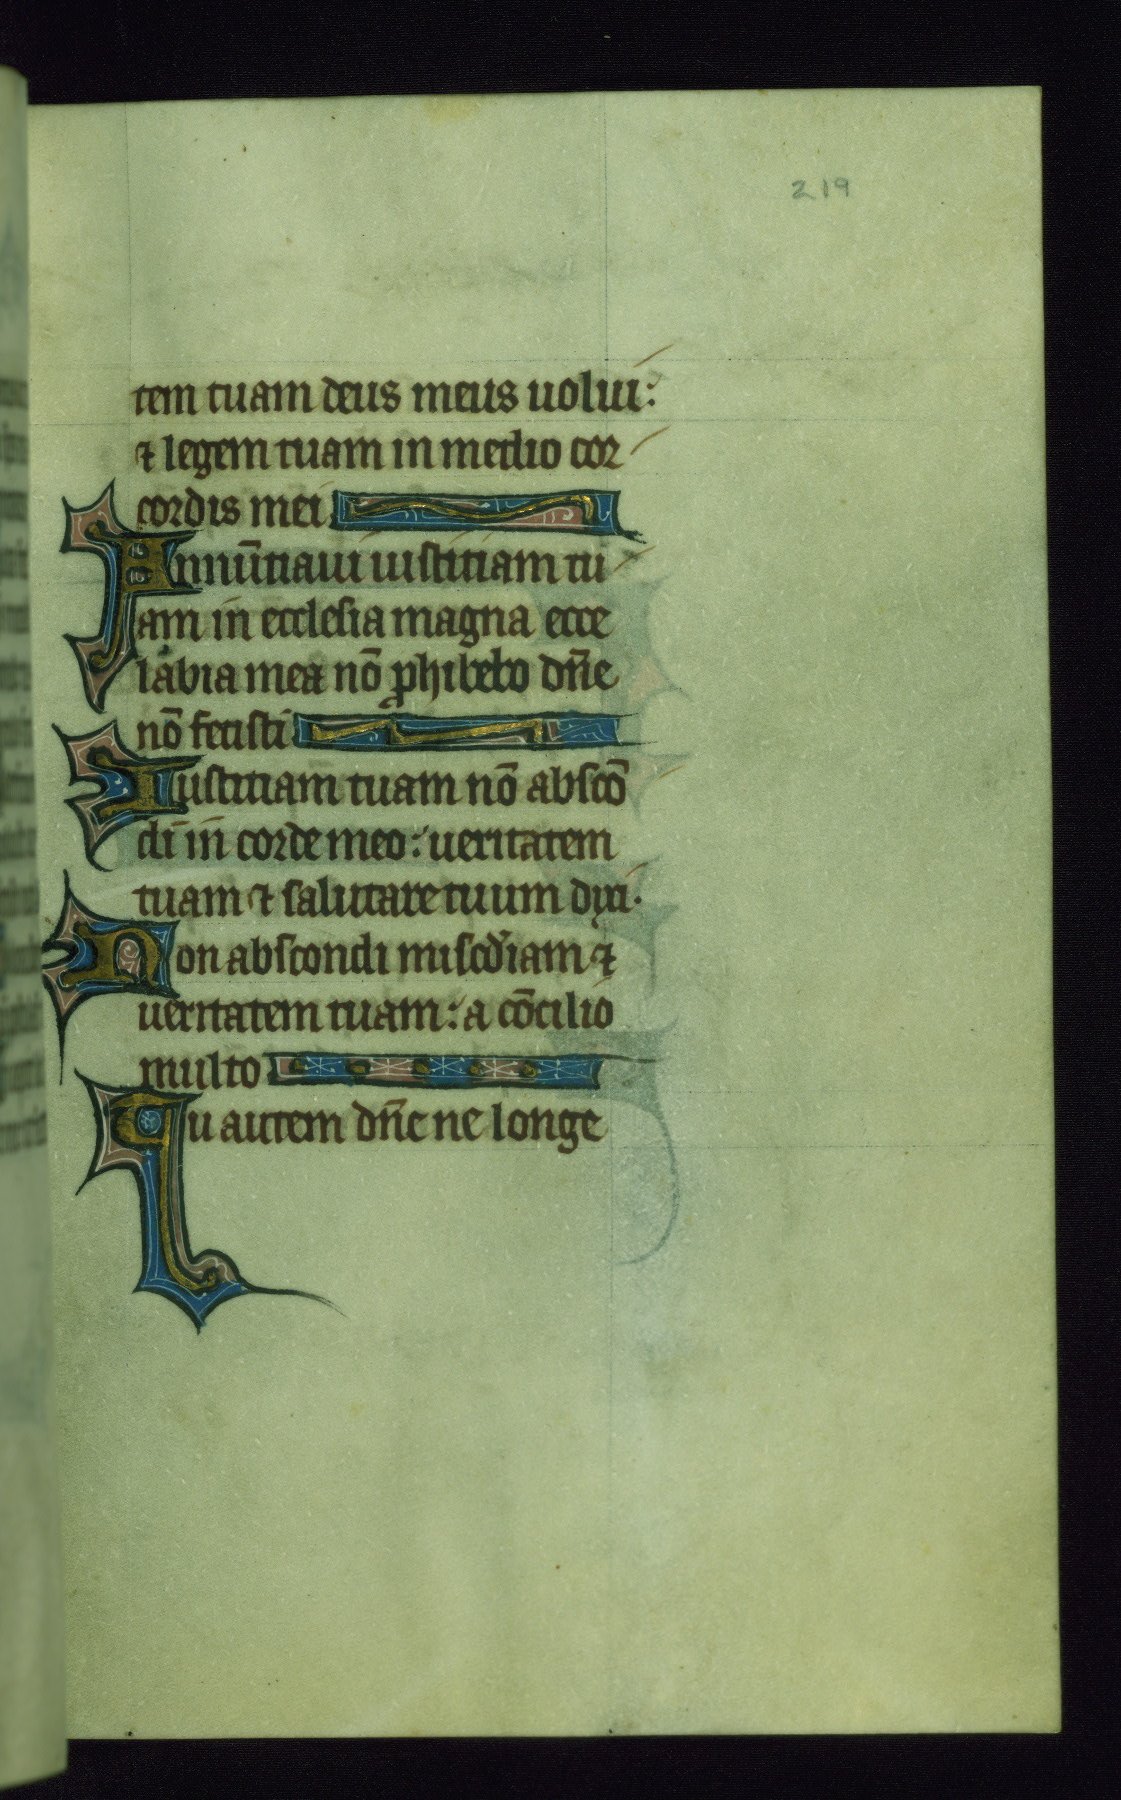 219
tem tuam deus meus uolui:
⁊ legem tuam in medio cor
cordis mei
Annūtiaui iustitiam tu
am in ecclesia magna ecce
labia mea nō ꝓhibebo dn̄e
nō fecisti
Iustitiam tuam nō abscō
di in corde meo: ueritatem
tuam ⁊ salutare tuum dixi.
Non abscondi miscd̓iam ⁊
ueritatem tuam: a cōcilio
multo
Tu autem dn̄e ne longe